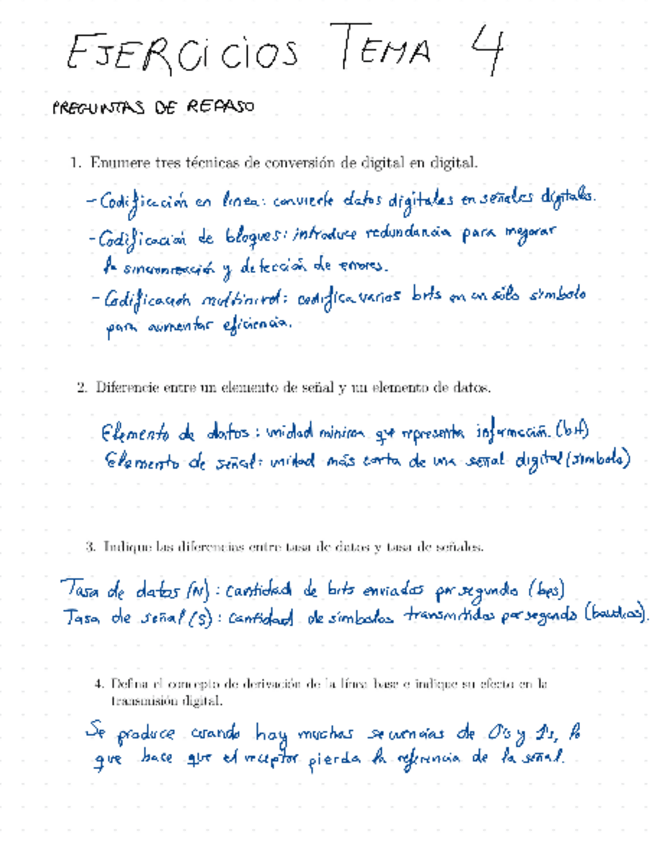 EJERCiCiOS TEMA 4
PREGUNTAS DE REPASO
1. Enumere tres técnicas de conversión de digital en digital.
- Codificación en línea: convierte datos digitales en señales digitales.
- Codificación de bloques: introduce redundancia para mejorar
la sincronización y detección de errores.
- Codificación multinivel: codifica varios bits en un sólo símbolo
para aumentar eficiencia.
2. Diferencie entre un elemento de señal y un elemento de datos.
Elemento de datos: unidad mínima que representa información. (bit)
Elemento de señal: unidad más corta de una señal digital (símbolo)
3. Indique las diferencias entre tasa de datos y tasa de señales.
Tasa de datos (N): cantidad de bits enviados por segundo (bps)
Tasa de señal (S): cantidad de símbolos transmitidos por segundo (baudios).
4. Defina el concepto de derivación de la línea base e indique su efecto en la
transmisión digital.
Se produce cuando hay muchas secuencias de 0's y 1's, lo
que hace que el receptor pierda la referencia de la señal.